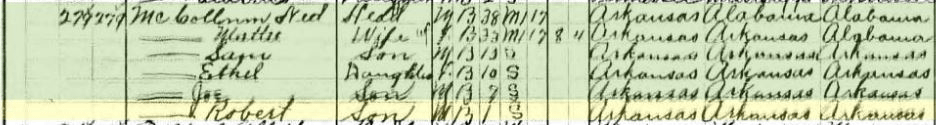 277 277 McCollum, Ned Head M B 38 M1 17 Arkansas Alabama Alabama
—— Mattie Wife F B 33 M1 17 8 4 Arkansas Arkansas Alabama
—— Sam Son M B 13 S Arkansas Arkansas Arkansas
—— Ethel Daughter F B 10 S Arkansas Arkansas Arkansas
—— Joe Son M B 7 S Arkansas Arkansas Arkansas
—— Robert Son M B 1 S Arkansas Arkansas Arkansas